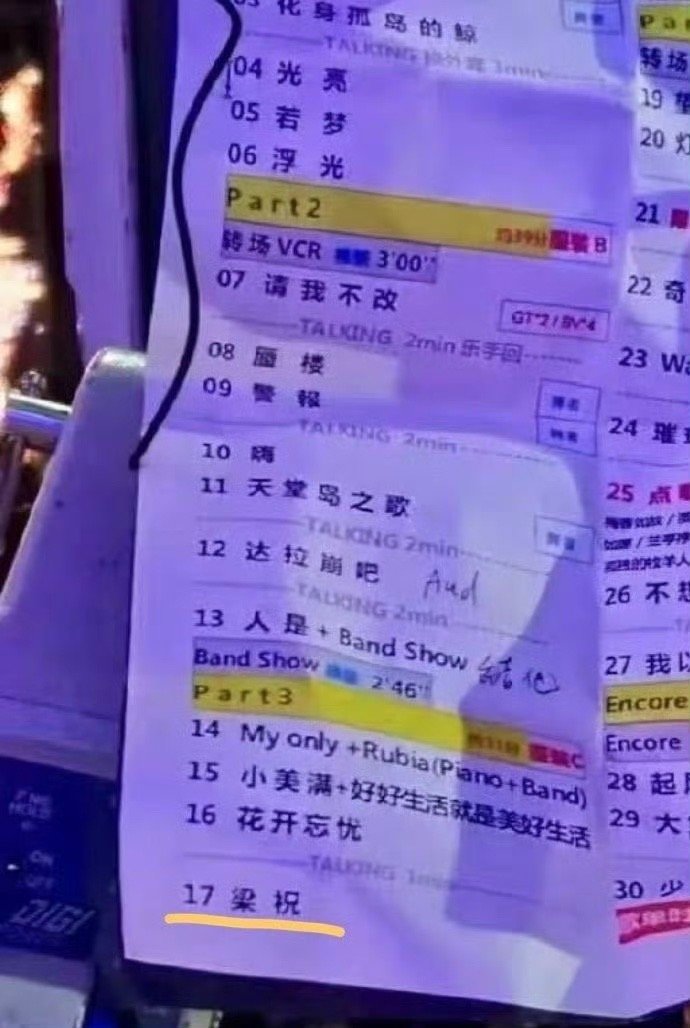 03 化身孤岛的鲸
TALKING
04 光亮
05 若梦
06 浮光
Part2
服装B
转场VCR 3'00''
07 请我不改
GT*2/BV*4
TALKING 2min 乐手回
08 蜃楼
09 警报
TALKING 2min
10 嗨
11 天堂岛之歌
TALKING 2min
12 达拉崩吧 And
TALKING 2min
13 人是+Band Show
Band Show 2'46''
Part3
服装C
14 My only +Rubia(Piano+Band)
15 小美满+好好生活就是美好生活
16 花开忘忧
TALKING 1min
17 梁祝
转场
19
20 灯
21
22 奇
23 Wa
24 璀
25 点
26 不想
27 我以
Encore
Encore
28 起
29 大
30 少
DIGI